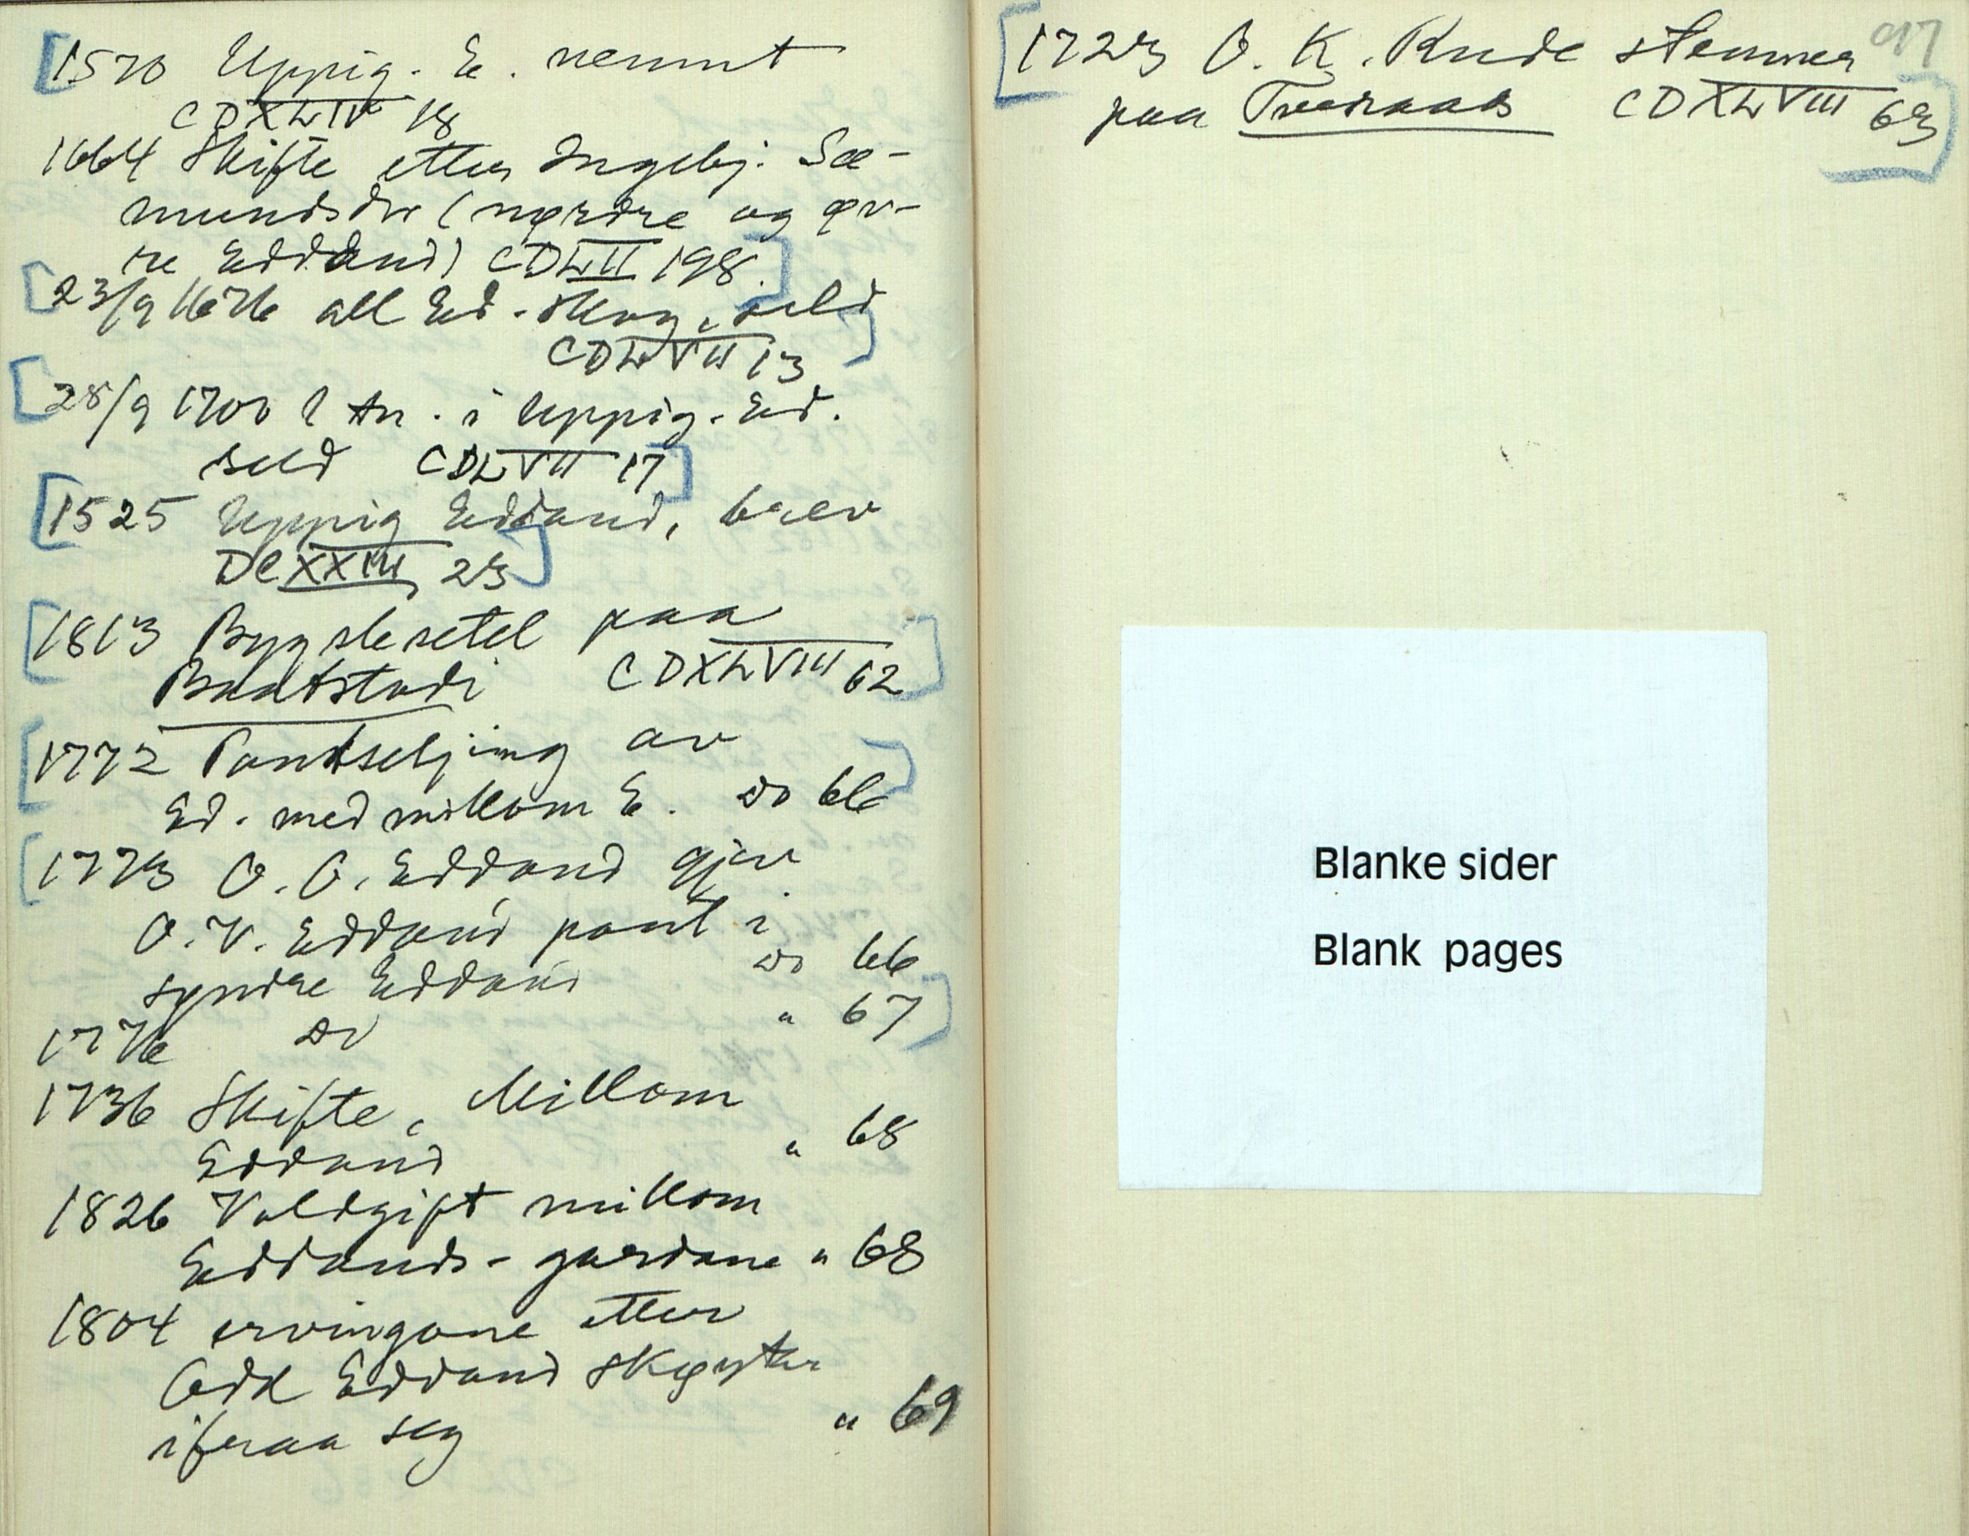 [1570 Uppig. E. nemnt
CDXLIV 18
1664 Skifte etter Ingebj. Sæ-
mundsdtr (nørdre og øv-
re Eddand) CDLII 198]
[23/9 1676 all Ed. skog, seld
CDLVII 13]
[28/9 1700 1 tn. i Uppig. Ed.
seld CDLVII 17]
[1525 Uppig Eddand, brev
DCXXIII 23]
[1813 Bygslesetel paa
Baatstadi CDXLVIII 62]
[1772 Pantseljing av
Ed. med millom E. do 66]
[1773 O. O. Eddand gjev
O. V. Eddand pant i
syndre Eddand do 66
1776 do " 67]
1736 Skifte, Millom
Eddand " 68
1826 Voldgift millom
Eddands-gardane " 68
1804 ervingane etter
Odd Eddand skøyter
ifraa seg " 69
97
[1723 O. K. Rude stemner
paa Tveraaes CDXLVIII 63]
Blanke sider
Blank pages